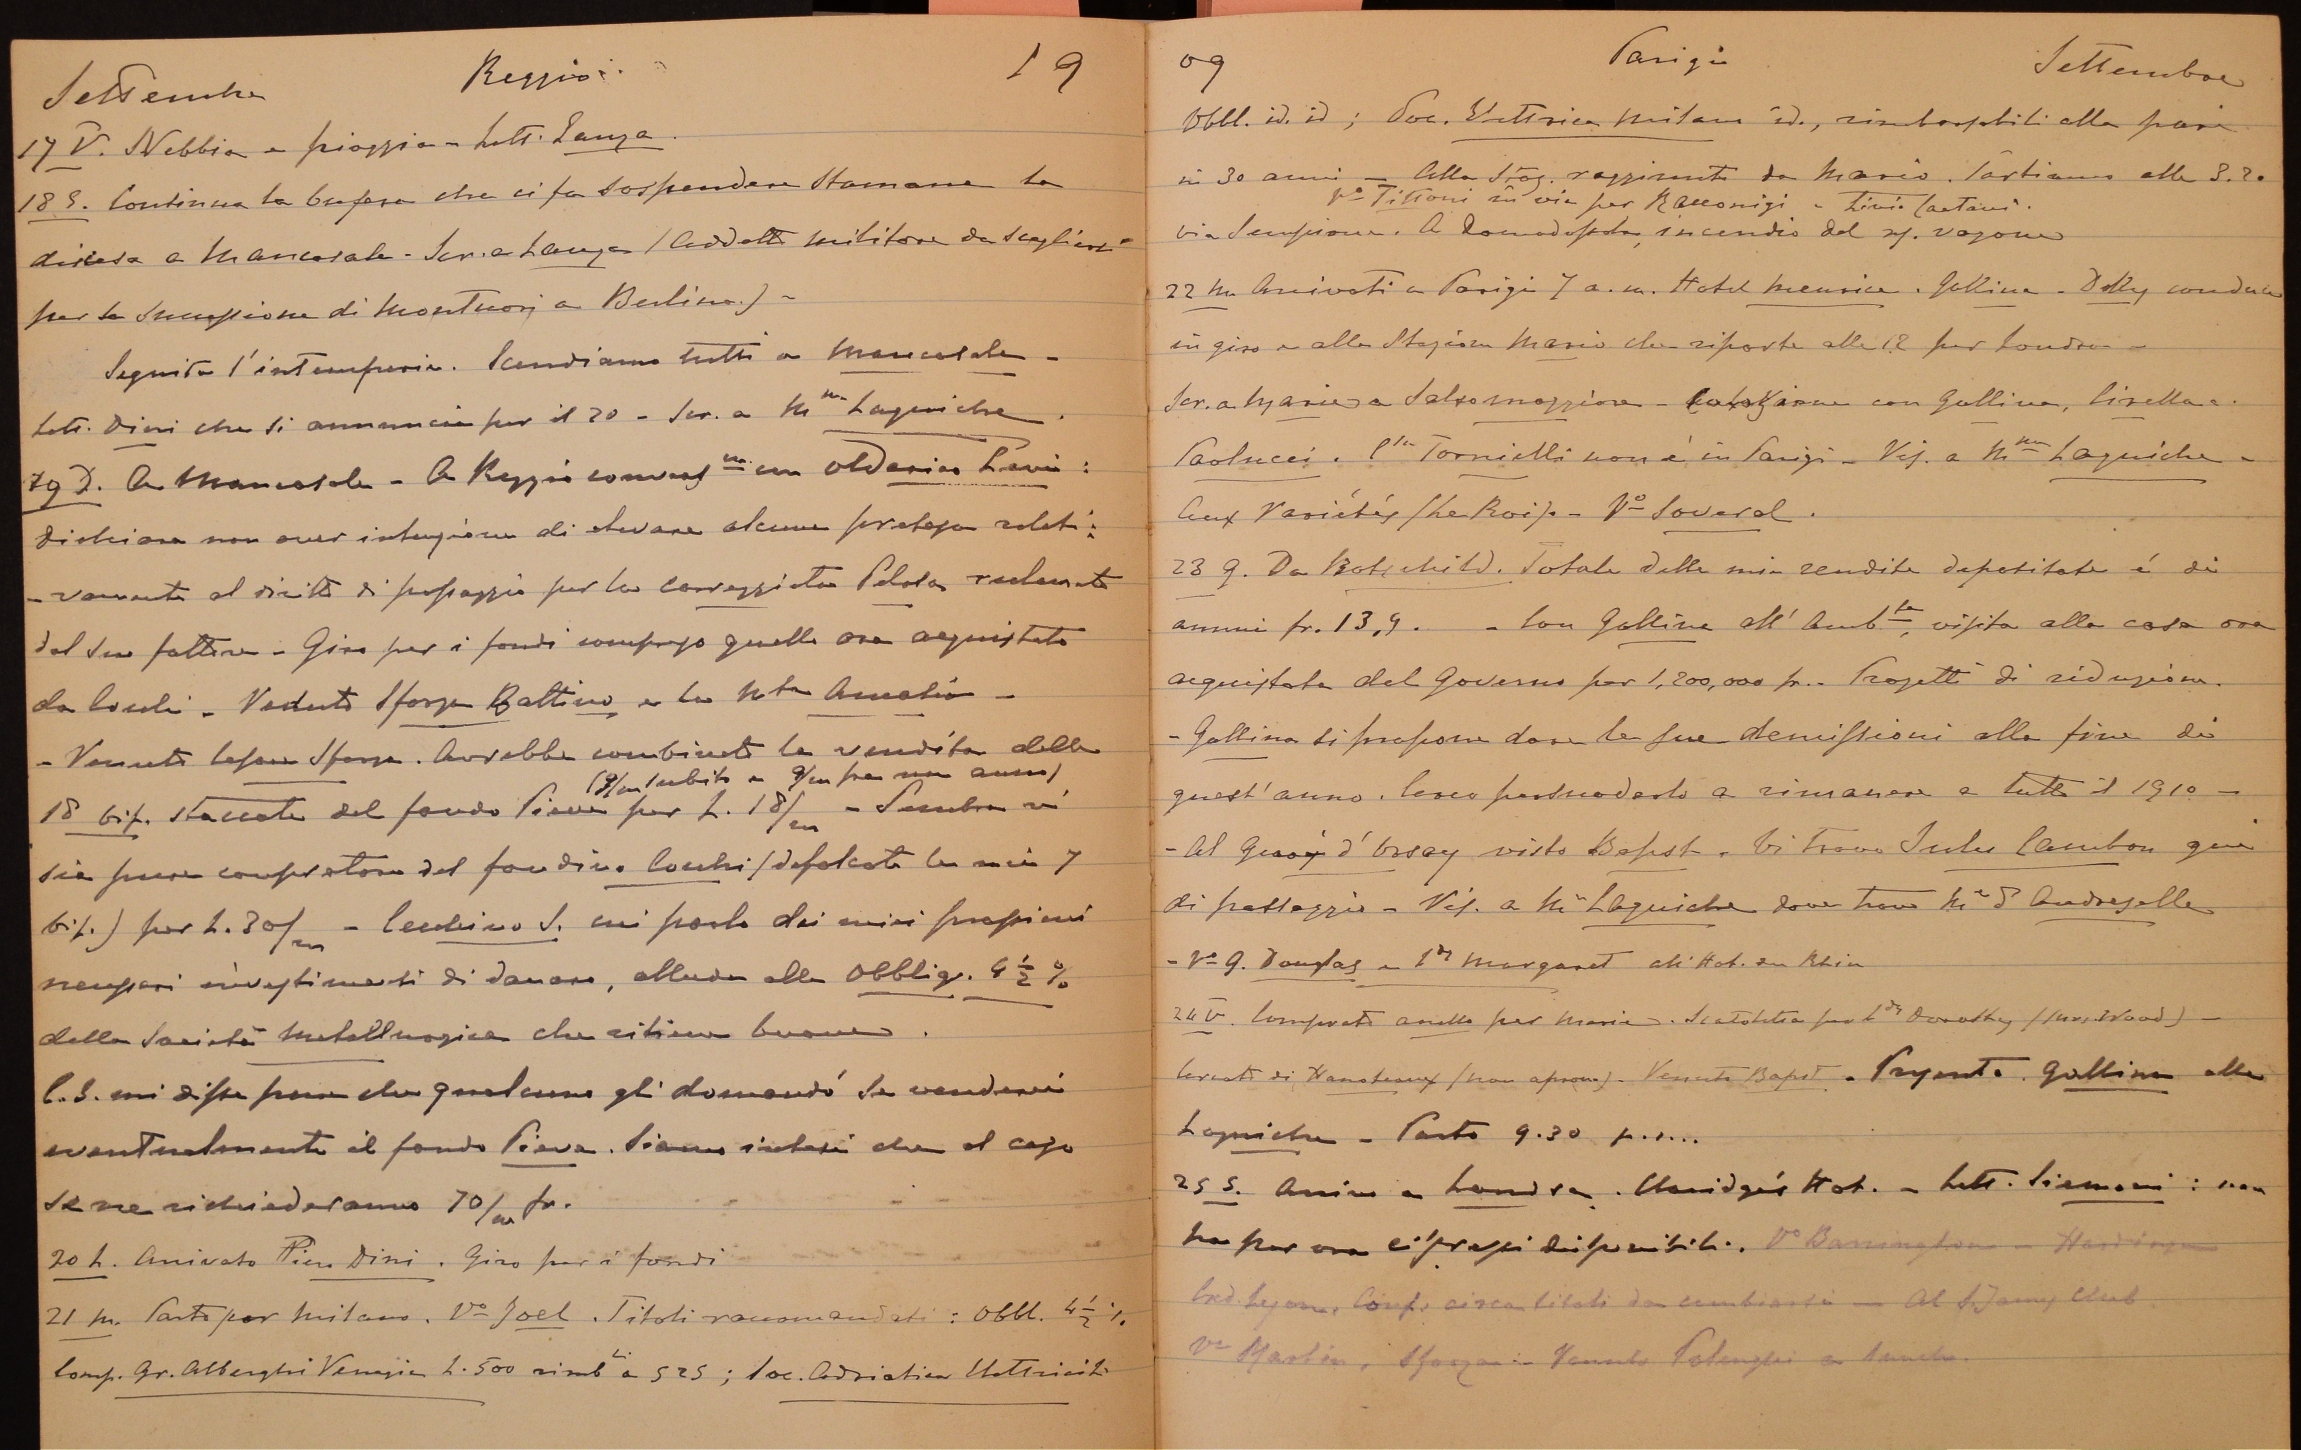 Settembre Reggio 19
17 V. Nebbia e pioggia - Lett. Lanza.
18 S. Continua la bufera che ci fa sospendere stamane la
discesa a Mancasale - Scr. a Lanza (Addetto militare da scegliersi
per la successione di Montuori a Berlino.) -
Seguita l'intemperie. Scendiamo tutti a Mancasale -
Lett. Dini che si annuncia per il 20 - Scr. a Mme Laguiche.
19 D. A Mancasale - A Reggio convers.ne con Olderico Levi:
dichiara non aver intenzione di elevare alcuna pretesa relati:
-vamente al diritto di passaggio per la carreggiata Pelosa reclamato
dal suo fattore - Giro per i fondi compreso quello ora acquistato
da Cocchi - Veduto Sforza Battino e la Nta Amalia -
- Venuto Cesare Sforza. Avrebbe combinato la vendita delle
(9/m subito e 9/m fra un anno)
18 bif. staccate del fondo Pieve per L. 18/m - Sembra vi
sia pure compratore del fondino Cocchi (defalcate le mie 7
bif.) per L. 30/m - Cecchino S. mi parla dei miei prossimi
necessari investimenti di danaro, allude alle Obblig. 4 ½ %
della Società Metallurgica che ritiene buone.
C. S. mi disse pure che qualcuno gli domandò se venderei
eventualmente il fondo Pieve. Siamo intesi che al caso
se ne richiederanno 70/m fr.
20 L. Arrivato Piero Dini. Giro per i fondi
21 M. Parto per Milano. Vo Joel. Titoli raccomandati: Obbl. 4 ½ %
Comp. Gr. Alberghi Venezia L. 500 rimb.li a 525; Soc. Adriatica Elettricità
09 Parigi Settembre
Obbl. id. id; Soc. Elettrica Milano id., rimborsabili alla pari
in 30 anni - Alla Staz. raggiunto da Mario. Partiamo alle 3.20
Vo Tittoni in via per Racconigi - Livio Caetani.
via Sempione. A Domodossola, incendio del vagone
22 M. Arrivati a Parigi 7 a.m. Hotel Meurice. Gallina - Dolly conduce
in giro e alla Stazione Mario che riparte alle 12 per Londra -
Scr. a Maria a Salsomaggiore - Colazione con Gallina,
Paolucci. Css Tornielli non è in Parigi - Vis. a Mme Laguiche -
Aux Variétés (Le Roi) - Vo Soveral.
23 G. Da Rotschild. Totale delle mie rendite depositate è di
annui fr. 13,9. - Con Gallina all'Amb.ta, visita alla casa ora
acquistata dal Governo per 1,200,000 fr. - Progetti di riduzione.
- Gallina si propone dare le sue demissioni alla fine di
quest'anno. Cerco persuaderlo a rimanere a tutto il 1910 -
- Al Quay d'Orsay visto Bapst. Vi trovo Jules Cambon qui
di passaggio - Vis. a Me Laguiche dove trovo Me d'Andreselle
- Vo G. Douglas e Ldy Margaret all'Hot. du Rhin
24 V. Comprato anello per Maria. Scatoletta per Ldy Dorothy (Mrs. Wood) -
Cercato di Hanotaux (non a Parigi) - Venuto Bapst. - Gallina alla
Laguiche - Parto 9.30 p.m.
25 S. Arrivo a Londra. Claridge's Hot. - Lett. Siemoni: non
ha per ora cipressi disponibili. Vo Barrington - Hardinge
Cred. Lyon. Conf. circa titoli da cambiarsi - Al S. James Club
Vo Martin, Sforza - Venuto Polenghi a